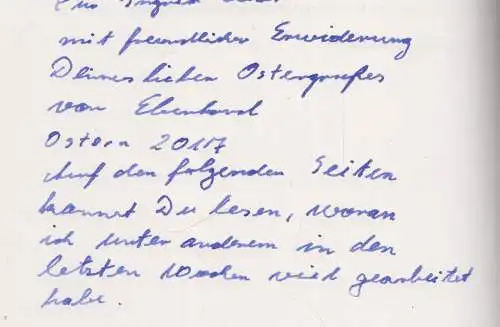 Für Ingrid
mit freundlicher Erwiderung
Deines lieben Ostergrußes
von Eberhard
Ostern 2017
Auf den folgenden Seiten
kannst Du lesen, woran
ich unter anderem in den
letzten Wochen viel gearbeitet
habe.